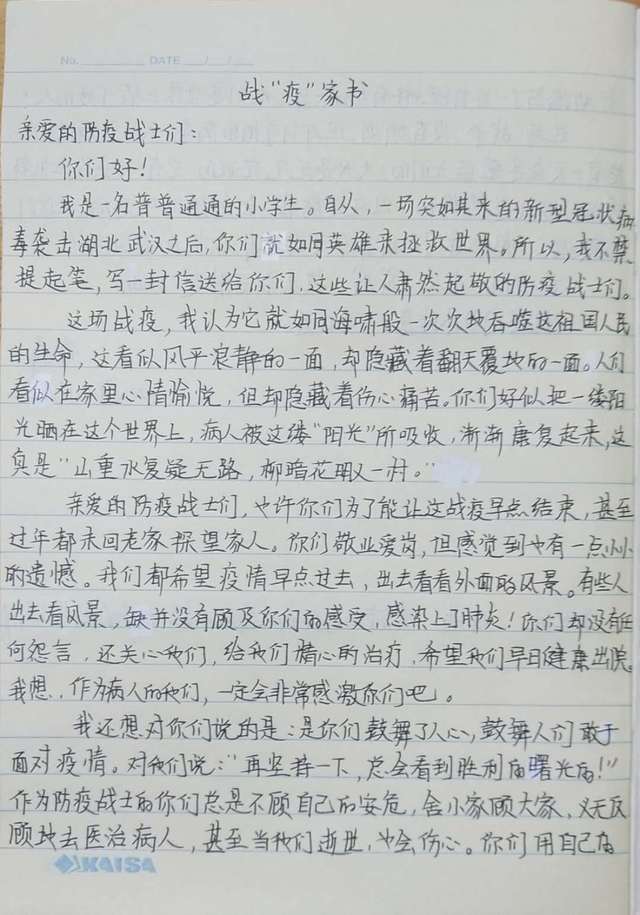 No. DATE / /
战“疫”家书
亲爱的防疫战士们：
你们好！
我是一名普普通通的小学生。自从，一场突如其来的新型冠状病
毒袭击湖北武汉之后，你们就如同英雄来拯救世界。所以，我不禁
提起笔，写一封信送给你们，这些让人肃然起敬的防疫战士们。
这场战疫，我认为它就如同海啸般一次次地吞噬这祖国人民
的生命，这看似风平浪静的一面，却隐藏着翻天覆地的一面。人们
看似在家里心情愉悦，但却隐藏着伤心痛苦。你们好似把一缕阳
光晒在这个世界上，病人被这缕“阳光”所吸收，渐渐康复起来，这
真是“山重水复疑无路，柳暗花明又一村。”
亲爱的防疫战士们，也许你们为了能让这战疫早点结束，甚至
过年都未回老家探望家人。你们敬业爱岗，但感觉到也有一点小小
的遗憾。我们都希望疫情早点过去，出去看看外面的风景。有些人
出去看风景，缺并没有顾及你们的感受，感染上了肺炎！你们却没有任
何怨言，还关心我们，给我们精心的治疗，希望我们早日健康出院。
我想，作为病人的我们，一定会非常感激你们吧。
我还想对你们说的是：是你们鼓舞了人心，鼓舞人们敢于
面对疫情。对我们说：“再坚持一下，总会看到胜利的曙光的！”
作为防疫战士的你们总是不顾自己的安危，舍小家顾大家，义无反
顾地去医治病人，甚至当我们逝世，也会伤心。你们用自己的
KAISA